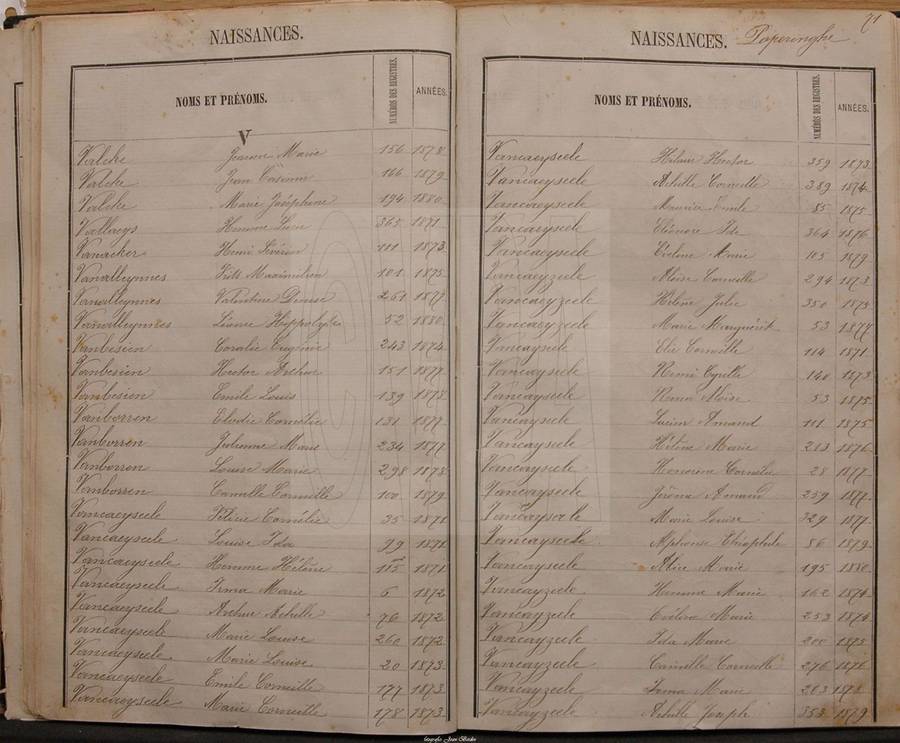 NAISSANCES.
NOMS ET PRÉNOMS. NUMÉROS DES REGISTRES. ANNÉES.
V
Valcke Marie 156 1878
Valcke Jean 166 1879
Valcke Marie Joséphine 194 1880
Vallaeys 365 1871
Vanacker Henri Séverin 111 1873
Vanalleynnes Maximilien 101 1875
Vanalleynnes Valentine Denise 261 1877
Vanalleynnes Léonie Hippolyte 52 1880
Vanbesien Coralie Eugénie 243 1874
Vanbesien Hector Arthur 151 1877
Vanbesien Emile Louis 139 1878
Vanborren Elodie Cornélie 131 1877
Vanborren Julienne Marie 234 1877
Vanborren Louise Marie 298 1878
Vanborren Camille Corneille 100 1879
Vancaeyseele Félicie Cornélie 35 1871
Vancaeyseele Louise Ida 99 1871
Vancaeyseele Hélène 115 1871
Vancaeyseele Irma Marie 6 1872
Vancaeyseele Arthur Achille 76 1872
Vancaeyseele Marie Louise 260 1872
Vancaeyseele Marie Louise 20 1873
Vancaeyseele Emile Corneille 177 1873
Vancaeyseele Marie Corneille 178 1873
71
NAISSANCES. Poperinghe
NOMS ET PRÉNOMS. NUMÉROS DES REGISTRES. ANNÉES.
Vancaeyseele Hector 359 1873
Vancaeyseele Achille Corneille 389 1874
Vancaeyseele Maurice Emile 85 1875
Vancaeyseele Eléonore Ida 364 1876
Vancaeyseele Marie 105 1879
Vancaeyzeele Aloïse Corneille 294 1873
Vancaeyzeele Hélène Julie 350 1875
Vancaeyzeele Marie Marguerite 53 1877
Vancayseele Elie Corneille 114 1871
Vancayseele Remi Cyrille 140 1873
Vancayseele Aloïse 53 1875
Vancayseele Lucien Amand 111 1875
Vancayseele Marie 213 1876
Vancayseele Honorine Cornélie 28 1877
Vancayseele Jérôme Amand 259 1877
Vancayseele Marie Louise 329 1877
Vancayseele Alphonse Théophile 86 1879
Vancayseele Alice Marie 195 1880
Vancayzeele Marie 162 1874
Vancayzeele Marie 253 1874
Vancayzeele Ida Marie 200 1875
Vancayzeele Camille Corneille 276 1876
Vancayzeele Irma Marie 203
Vancayzeele Achille Joseph 353 1879